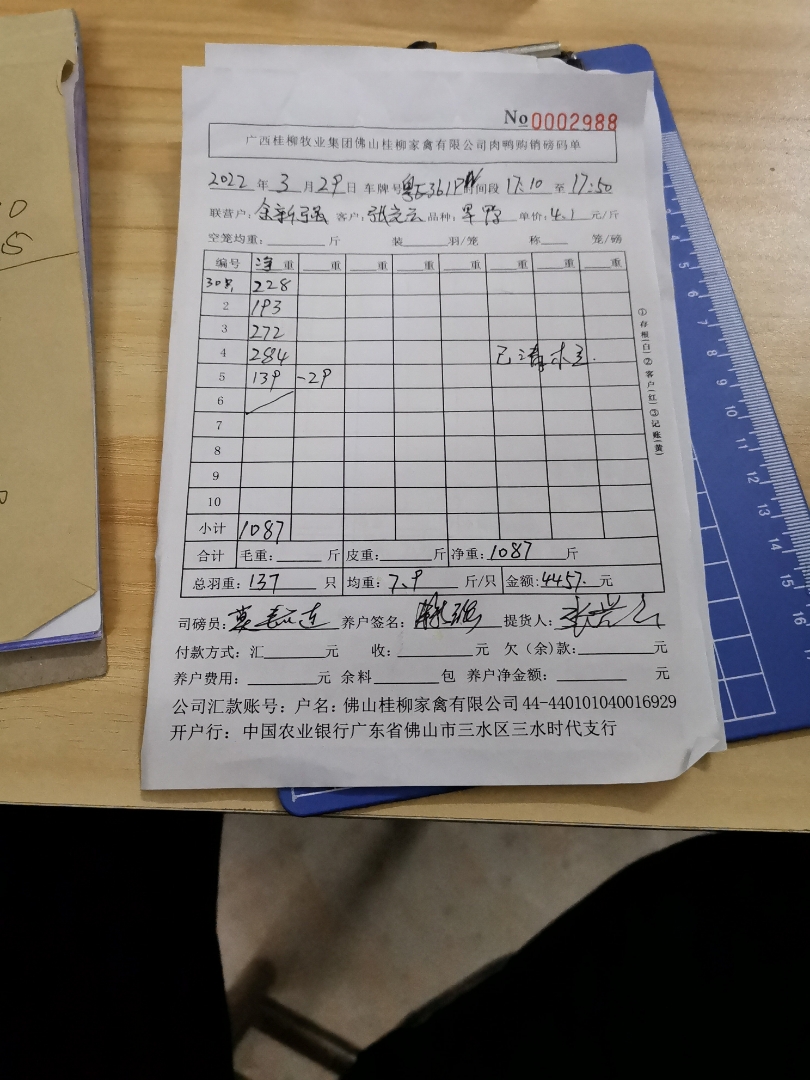 No 0002988
广西桂柳牧业集团佛山桂柳家禽有限公司肉鸭购销磅码单
2022 年 3 月 29 日 车牌号 时间段 17:10 至 17:50
联营户: 客户: 品种: 单价: 4.1 元/斤
空笼均重: 斤 装 羽/笼 称 笼/磅
编号 净重 重 重 重 重 重 重 重
228
2 193
3 272
4 284 已清
5 139 -29
6
7
8
9
10
小计 1087
合计 毛重: 斤 皮重: 斤 净重: 1087 斤
总羽重: 137 只 均重: 7.9 斤/只 金额: 4457. 元
司磅员: 养户签名: 提货人:
付款方式: 汇 元 收: 元 欠(余)款: 元
养户费用: 元 余料 包 养户净金额: 元
公司汇款账号: 户名: 佛山桂柳家禽有限公司 44-440101040016929
开户行: 中国农业银行广东省佛山市三水区三水时代支行
①存根(白)②客户(红)③记账(黄)
3 4 5 6 7 8 9 10 11 12 13 14 15 16
0
5